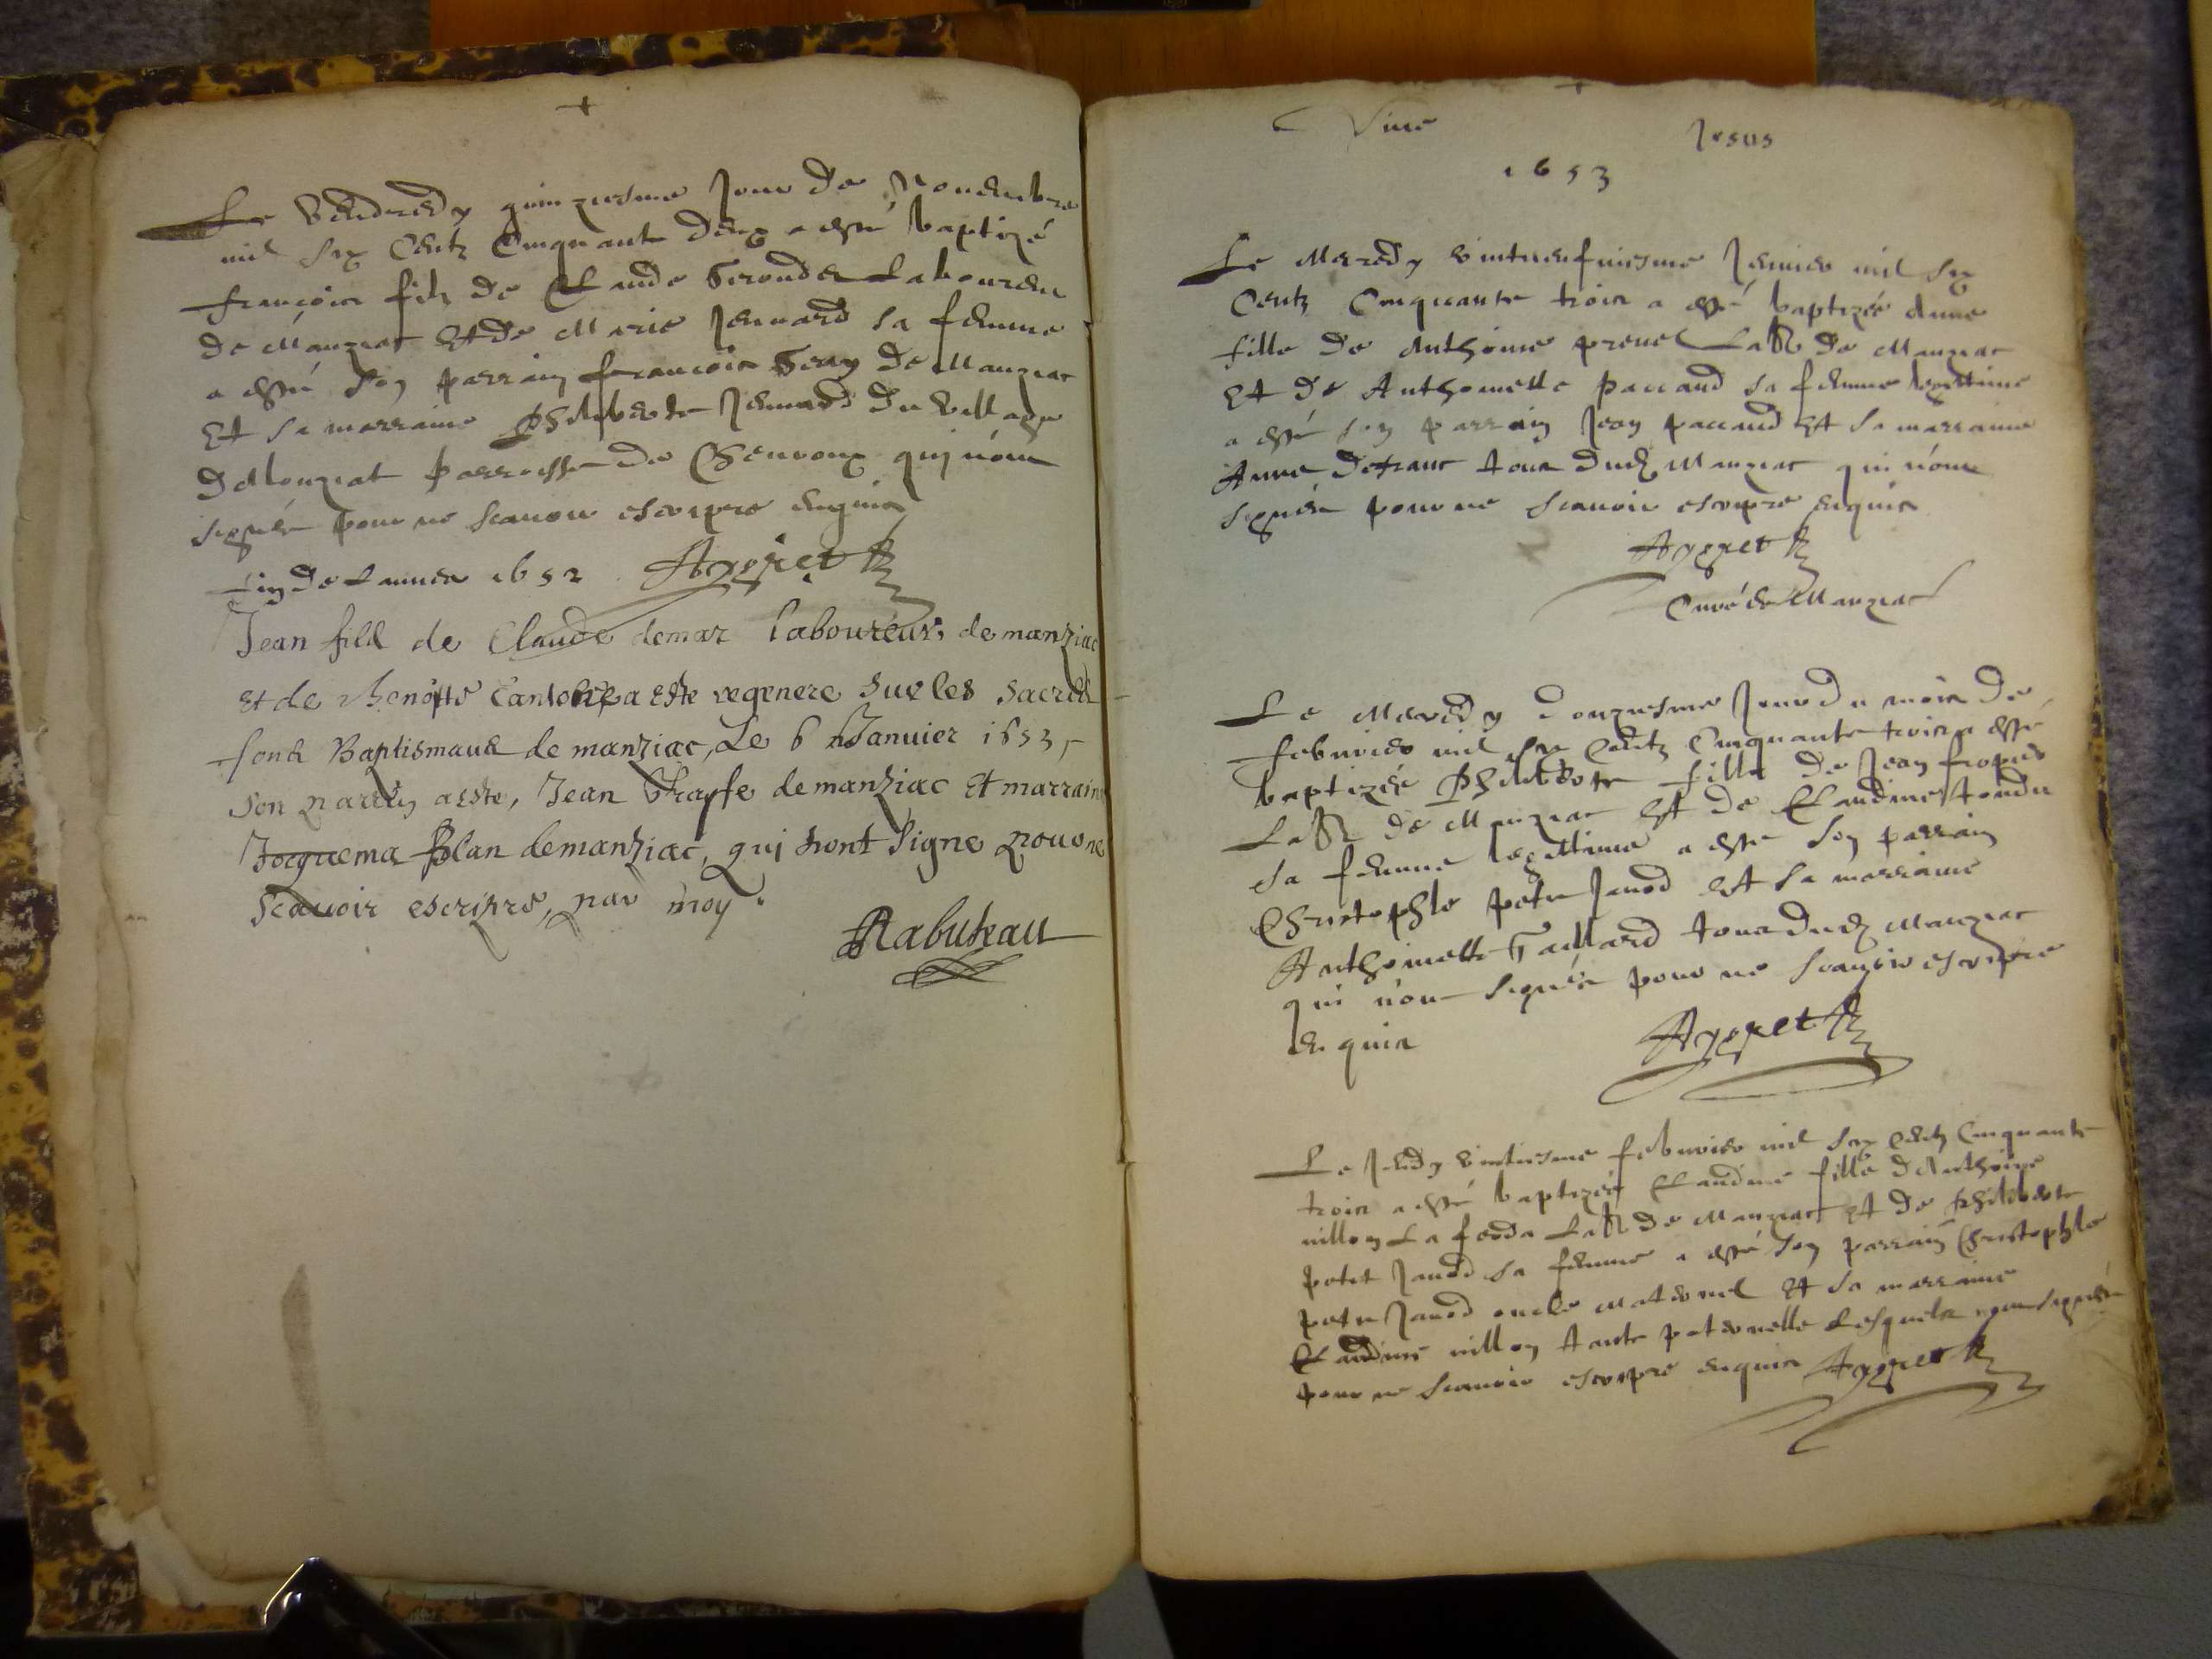 Le Vendredy quinziesme Jour de Novembre
mil six Centz Cinquante deux a esté baptizé
françois filz de Claude Laboureur
de Manziat Et de Marie Jennard sa femme
a esté son parrain francois de Manziat
Et sa marraine Philiberte Jennard du village
de parroisse de Chevroux qui n'ont
signéz pour ne scavoir escripre enquis
fin de Lannee 1652 Aggriet
Jean filz de Claude demar laboureur de manziac
Et de benoitte a Este regenere sur les sacrez
fonds Baptismaux de manziac, Le 6 Januier 1653,
son parrin a este, Jean de manziac Et marraine
Jacquema Blan de manziac, qui n'ont signe pour ne
scavoir escripre, par moy.
Rabuteau
Vive Jesus
1653
Le Mercredy Januier mil six
Centz Cinquante trois a esté baptizée Anne
fille de Anthoine prevel Lab^r de Manziat
Et de Anthoinette paccaud sa femme legittime
a esté son parrain Jean paccaud Et sa marraine
Anne defranc tous dud. Manziat qui n'ont
signéz pour ne scavoir escripre enquis
Aggriet
Curé de Manziat
Le Mercredy douziesme Jour du mois de
febvrier mil six Centz Cinquante trois a esté
baptizée Philiberte fille de Jean
Lab^r de Manziat Et de Claudine tondu
sa femme legittime a esté son parrain
Christophle petit Janod Et sa marraine
Anthoinette Gaillard tous dud. Manziat
qui n'ont signéz pour ne scavoir escripre
Enquis Aggriet
Le Jeudy vintiesme febvrier mil six Centz Cinquante
trois a esté baptizée Claudine fille d'Anthoine
nillon La Lab^r de Manziat Et de philiberte
petit Janod sa femme a esté son parrain Christophle
petit Janod oncle maternel Et sa marraine
Claudine nillon tante paternelle Lesquelz n'ont signéz
pour ne scavoir escripre enquis Aggriet